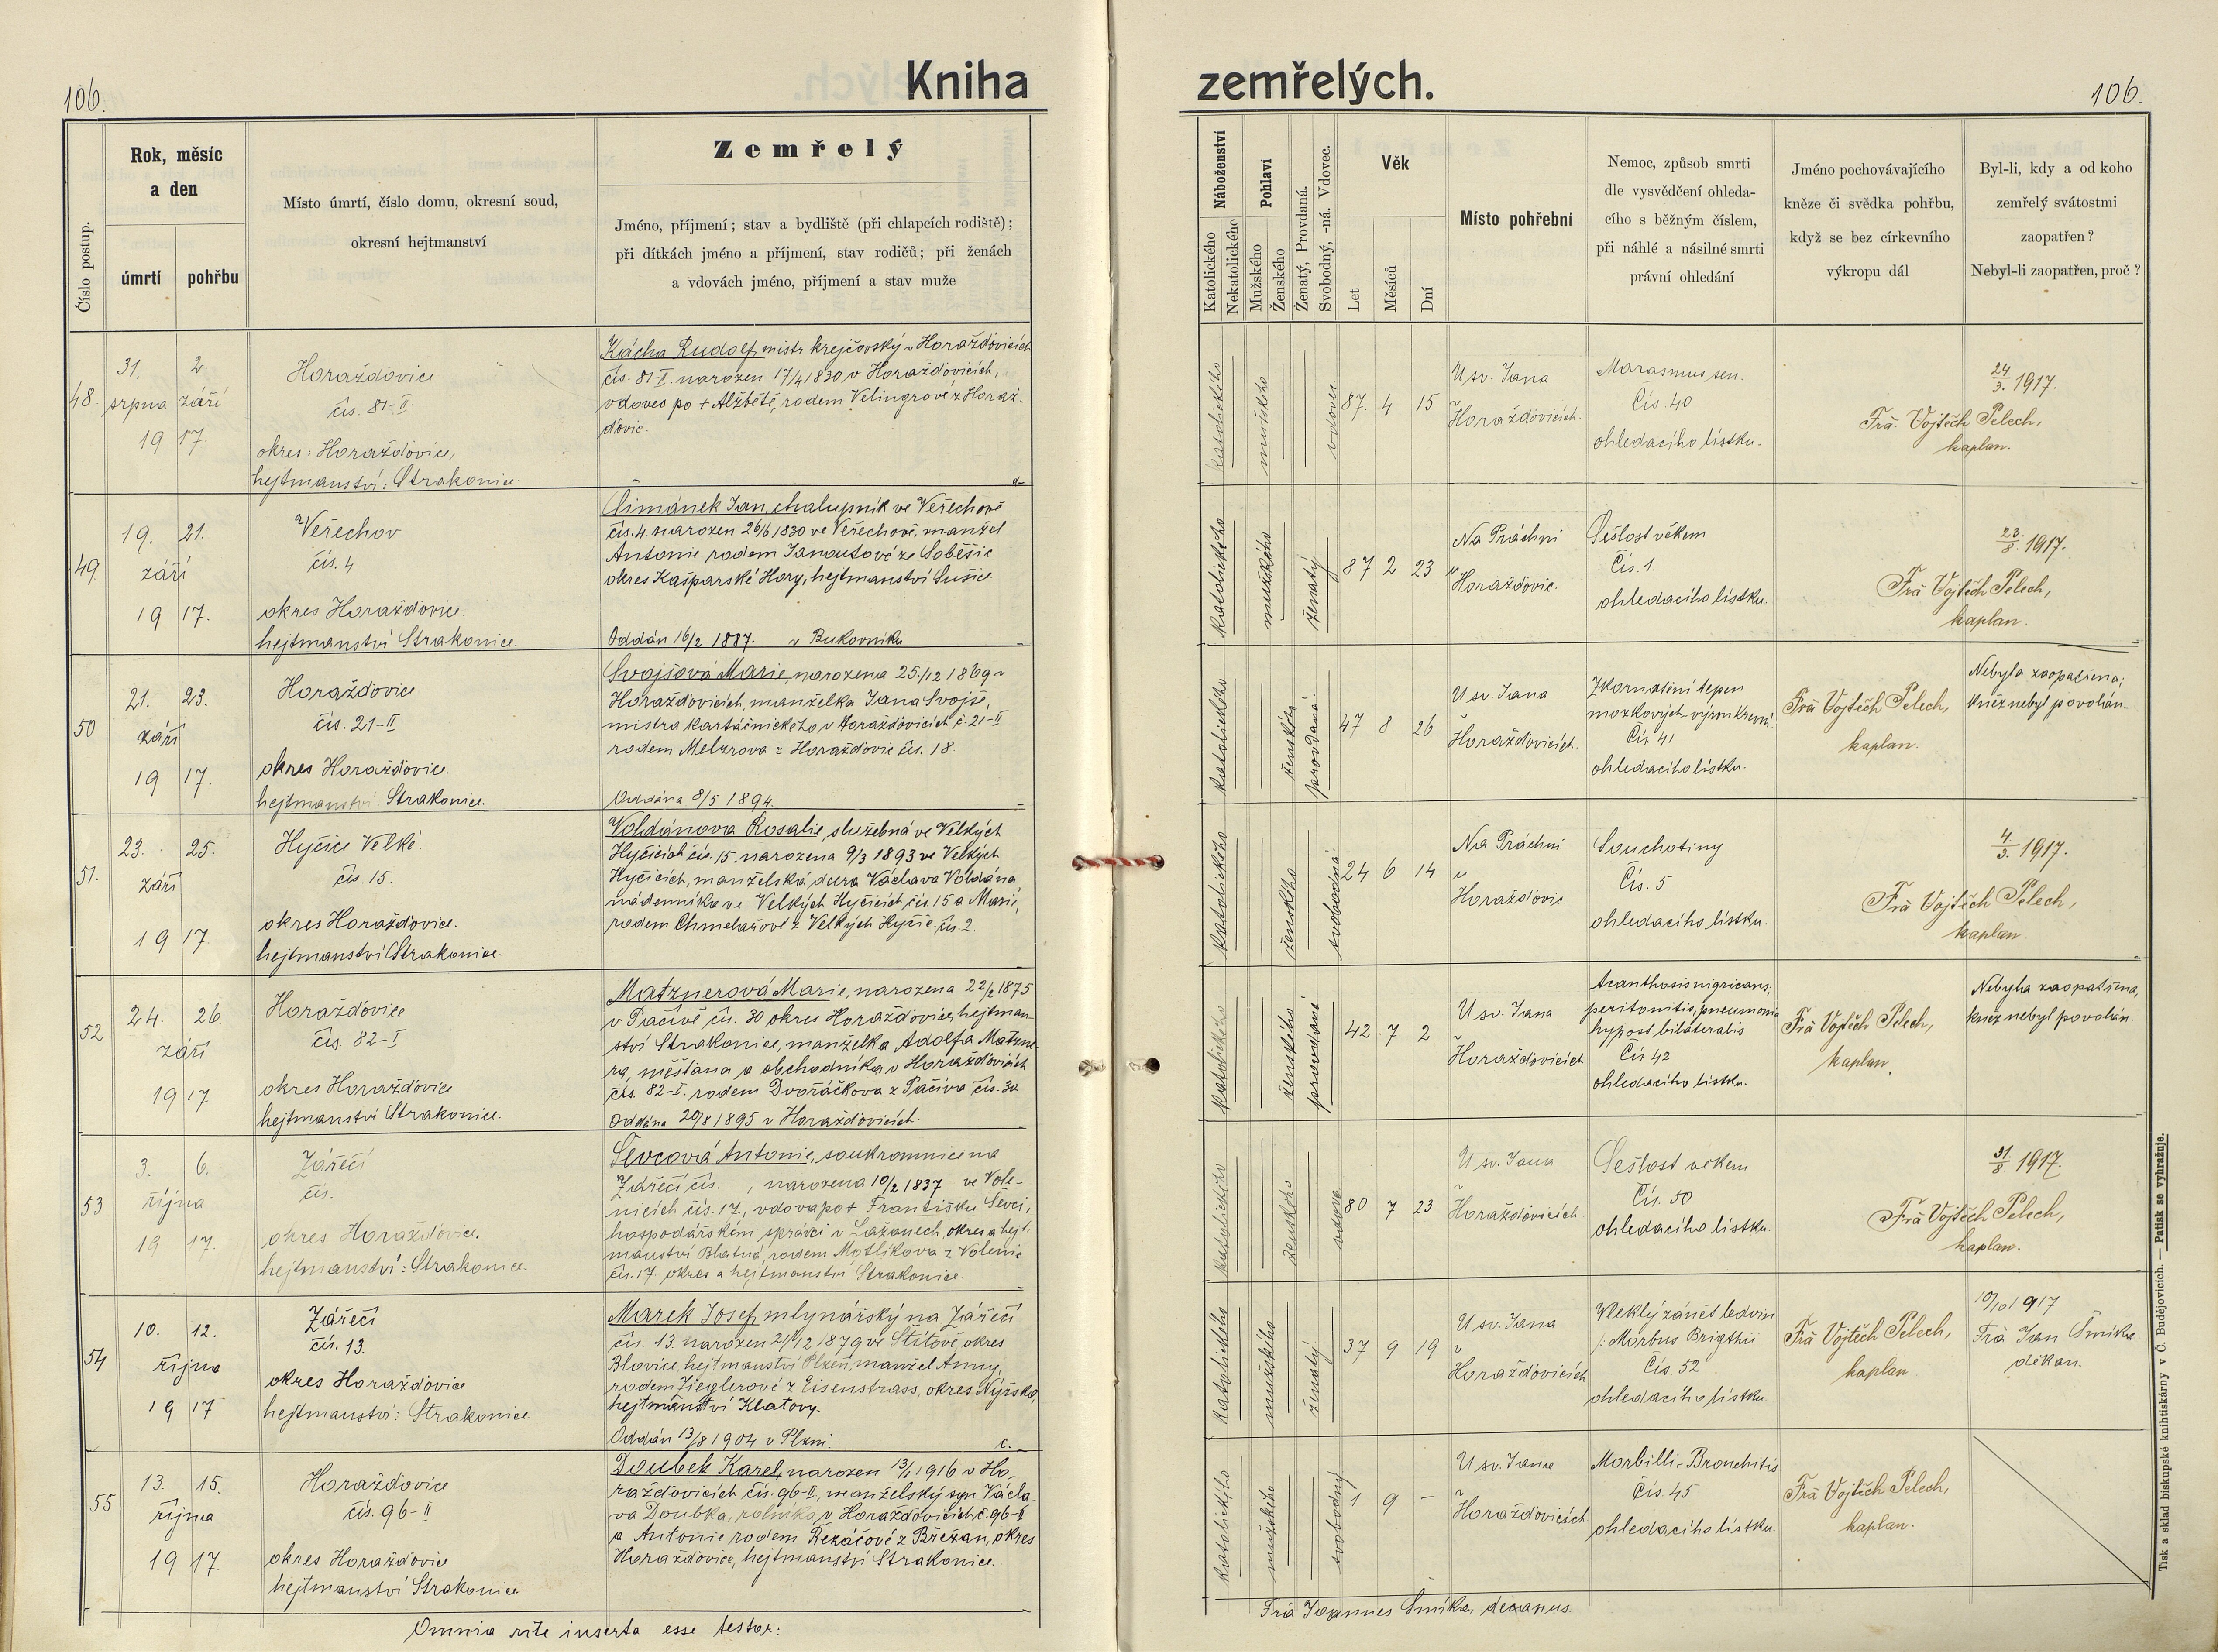 106.
Kniha
zemřelých.
106.
Číslo postup.
Rok, měsíc
a den
úmrtí
pohřbu
Místo úmrtí, číslo domu, okresní soud,
okresní hejtmanství
Zemřelý
Jméno, příjmení; stav a bydliště (při chlapcích rodiště);
při dítkách jméno a příjmení, stav rodičů; při ženách
a vdovách jméno, příjmení a stav muže
Náboženství
Katolického
Nekatolického
Pohlaví
Mužského
Ženského
Ženatý, Provdaná.
Svobodný, -ná. Vdovec.
Věk
Let
Měsíců
Dní
Místo pohřební
Nemoc, způsob smrti
dle vysvědčení ohleda-
cího s běžným číslem,
při náhlé a násilné smrti
právní ohledání
Jméno pochovávajícího
kněze či svědka pohřbu,
když se bez církevního
výkropu dál
Byl-li, kdy a od koho
zemřelý svátostmi
zaopatřen?
Nebyl-li zaopatřen, proč?
48.
31. 2.
srpna září
19 17.
Horažďovice
čís. 81-II
okres: Horažďovice,
hejtmanství: Strakonice.
Kácha Rudolf, mistr krejčovský v Horažďovicích
čís. 81-II. narozen 17/4 1830 v Horažďovicích,
vdovec po + Alžbětě, rodem Velingrové z Horaž-
ďovic.
katolického
mužského
vdovec
87. 4 15
U sv. Jana
v
Horažďovicích.
Marasmus sen.
Čís. 40
ohledacího lístku.
24/3. 1917.
Frà Vojtěch Pelech,
kaplan.
49.
19. 21.
září
19 17.
Veřechov
čís. 4
okres Horažďovice.
hejtmanství Strakonice.
Šimánek Jan, chalupník ve Veřechově
čís. 4. narozen 26/6 1830 ve Veřechově, manžel
Antonie rodem Janoutové ze Soběšic
okres Kašparské Hory, hejtmanství Sušice.
Oddán 16/2 1887. v Bukovníku
katolického
mužského
ženatý
87 2 23
Na Práchni
u
Horažďovic.
Sešlost věkem
Čís. 1.
ohledacího lístku.
23./8. 1917.
Frà Vojtěch Pelech,
kaplan.
50
21. 23.
září
19 17.
Horažďovice
čís. 21-II
okres Horažďovice.
hejtmanství: Strakonice.
Svojšová Marie, narozena 25./12 1869 v
Horažďovicích, manželka Jana Svojše,
mistra kartáčnického v Horažďovicích č. 21-II
rodem Melzrova z Horažďovic čís. 18.
Oddána 8/5 1894.
katolického
ženského
provdaná.
47 8 26
U sv. Jana
v
Horažďovicích.
Zkornatění tepen
mozkových výron krevní
Čís. 41
ohledacího lístku.
Frà Vojtěch Pelech,
kaplan.
Nebyla zaopatřena;
kněz nebyl povolán.
51.
23. 25.
září
19 17.
Hyčice Velké.
čís. 15.
okres Horažďovice.
hejtmanství Strakonice.
Voldánova Rosalie, služebná ve Velkých
Hyčicích čís. 15. narozena 9/3 1893 ve Velkých
Hyčicích, manželská dcera Václava Voldána
nádenníka ve Velkých Hyčicích, čís. 15 a Marie,
rodem Chmelařové z Velkých Hyčic čís. 2.
katolického
ženského
svobodná.
24 6 14
Na Práchni
u
Horažďovic.
Souchotiny
Čís. 5
ohledacího lístku.
4/3. 1917.
Frà Vojtěch Pelech,
kaplan.
52
24. 26.
září
19 17
Horažďovice
čís. 82-I
okres Horažďovice
hejtmanství Strakonice.
Matznerová Marie, narozena 22/2 1875
v Pačivě čís. 30 okres Horažďovice, hejtman-
ství Strakonice, manželka Adolfa Matzne-
ra, měšťana a obchodníka v Horažďovicích
čís. 82-I. rodem Dvořáčkova z Pačiva čís. 30.
Oddána 20/8 1895 v Horažďovicích.
katolického
ženského
provdaná
42 7 2
U sv. Jana
v
Horažďovicích
Acanthosis nigricans,
peritonitis, pneumonia
hypost. bilateralis
Čís. 42
ohledacího lístku.
Frà Vojtěch Pelech,
kaplan.
Nebyla zaopatřena,
kněz nebyl povolán.
53
3. 6.
října
19 17.
Zářečí
čís.
okres Horažďovice.
hejtmanství: Strakonice.
Ševcová Antonie, soukromnice na
Zářečí čís. , narozena 10/2 1837 ve Vole-
nicích čís. 17., vdova po + Františku Ševci,
hospodářském správci v Lažanech, okres a hejt-
manství Blatná, rodem Motlíkova z Volenic
čís. 17. okres a hejtmanství Strakonice.
katolického
ženského
vdova
80 7 23
U sv. Jana
v
Horažďovicích.
Sešlost věkem
Čís. 50
ohledacího lístku.
31./8. 1917.
Frà Vojtěch Pelech,
kaplan.
54
10. 12.
října
19 17
Zářečí
čís. 13.
okres Horažďovice
hejtmanství: Strakonice.
Marek Josef, mlynářský na Zářečí
čís. 13. narozen 21/12 1879 ve Štítově, okres
Blovice, hejtmanství Plzeň, manžel Anny,
rodem Zieglerové z Eisenstrass, okres Nýrsko,
hejtmanství Klatovy.
Oddán 13/8 1904 v Plzni.
katolického
mužského
ženatý
37 9 19
U sv. Jana
v
Horažďovicích
Vleklý zánět ledvin
/: Morbus Brigthii
Čís. 52
ohledacího lístku.
Frà Vojtěch Pelech,
kaplan
10/10 1917
Frà Jan Šmíka
děkan.
55
13. 15.
října
19 17.
Horažďovice
čís. 96-II
okres Horažďovice
hejtmanství Strakonice
Doubek Karel, narozen 13/1 1916 v Ho-
ražďovicích čís. 96-II, manželský syn Václa-
va Doubka, rolníka v Horažďovicích č. 96-II
a Antonie rodem Řezáčové z Břežan, okres
Horažďovice, hejtmanství Strakonice.
katolického
mužského
svobodný
1 9 –
U sv. Jana
v
Horažďovicích.
Morbilli - Bronchitis.
Čís. 45
ohledacího lístku.
Frà Vojtěch Pelech,
kaplan.
Omnia rite inserta esse testor:
Frà Joannes Šmíka, decanus.
Tisk a sklad biskupské knihtiskárny v Č. Budějovicích. — Patisk se vyhražuje.